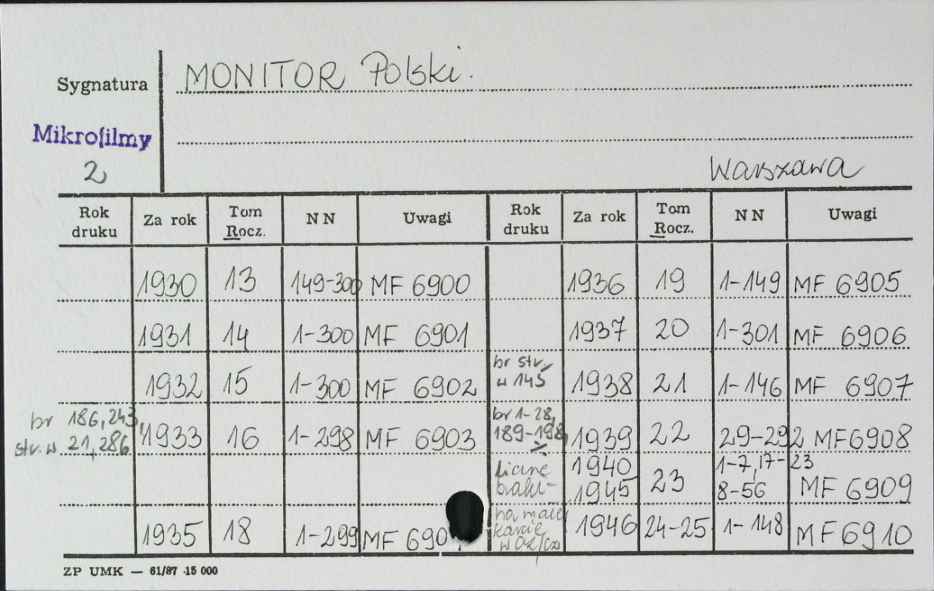 Sygnatura MONITOR Polski.
Mikrofilmy
2 Warszawa
Rok druku Za rok Tom Rocz. NN Uwagi Rok druku Za rok Tom Rocz. NN Uwagi
1930 13 149-300 MF 6900 1936 19 1-149 MF 6905
1931 14 1-300 MF 6901 1937 20 1-301 MF 6906
1932 15 1-300 MF 6902 br str. w 145 1938 21 1-146 MF 6907
br 186,243, str. w 21,286 1933 16 1-298 MF 6903 br 1-28, 189-198, 1939 22 29-292 MF6908
liczne braki- 1940 1945 23 1-7, 17-23 8-56 MF 6909
1935 18 1-299 MF 690 na małej karcie w 1946 24-25 1-148 MF 6910
ZP UMK — 61/87 ·15 000